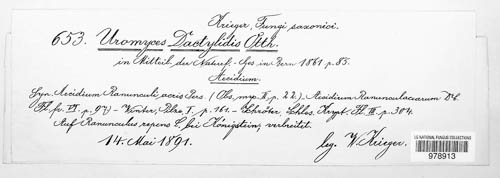 Krieger, Fungi saxonici.
653. Uromyces Dactylidis Otth.
in Mitteil. der Naturf. Ges. in Bern 1861 p. 85.
Aecidium.
Syn. Aecidium Ranunculi acris Pers. (Obs. myc. II. p. 22.) Aecidium Ranunculacearum DC.
Fl. fr. VI. p. 97) – Winter, Pilze, I, p. 161 – Schröter, Schles. Krypt. Fl. III. p. 304.
Auf Ranunculus repens L. bei Königstein, verbreitet.
14. Mai 1891.
leg. W. Krieger.
US NATIONAL FUNGUS COLLECTIONS
978913